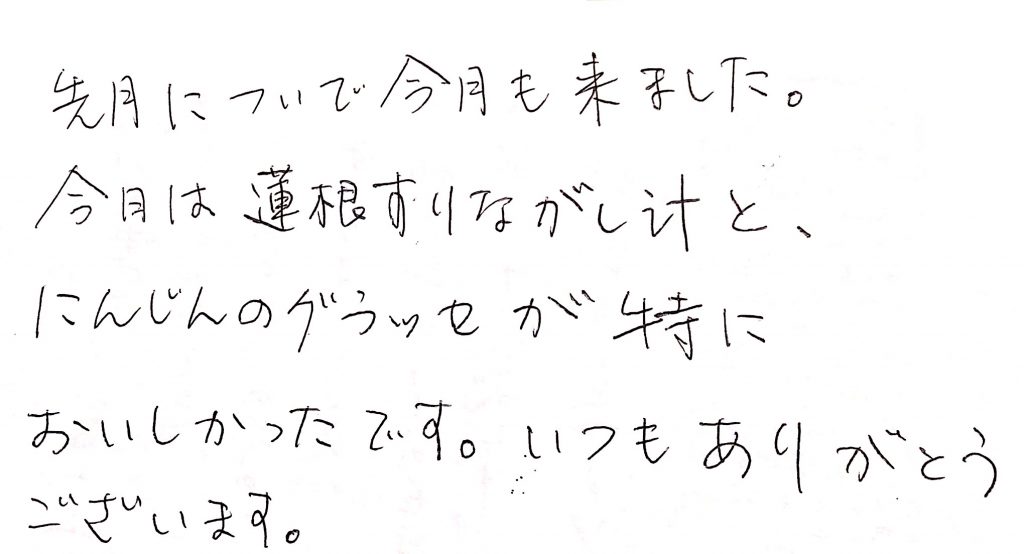 先月についで今月も来ました。
今月は蓮根すりながし汁と、
にんじんのグラッセが特に
おいしかったです。いつもありがとう
ございます。